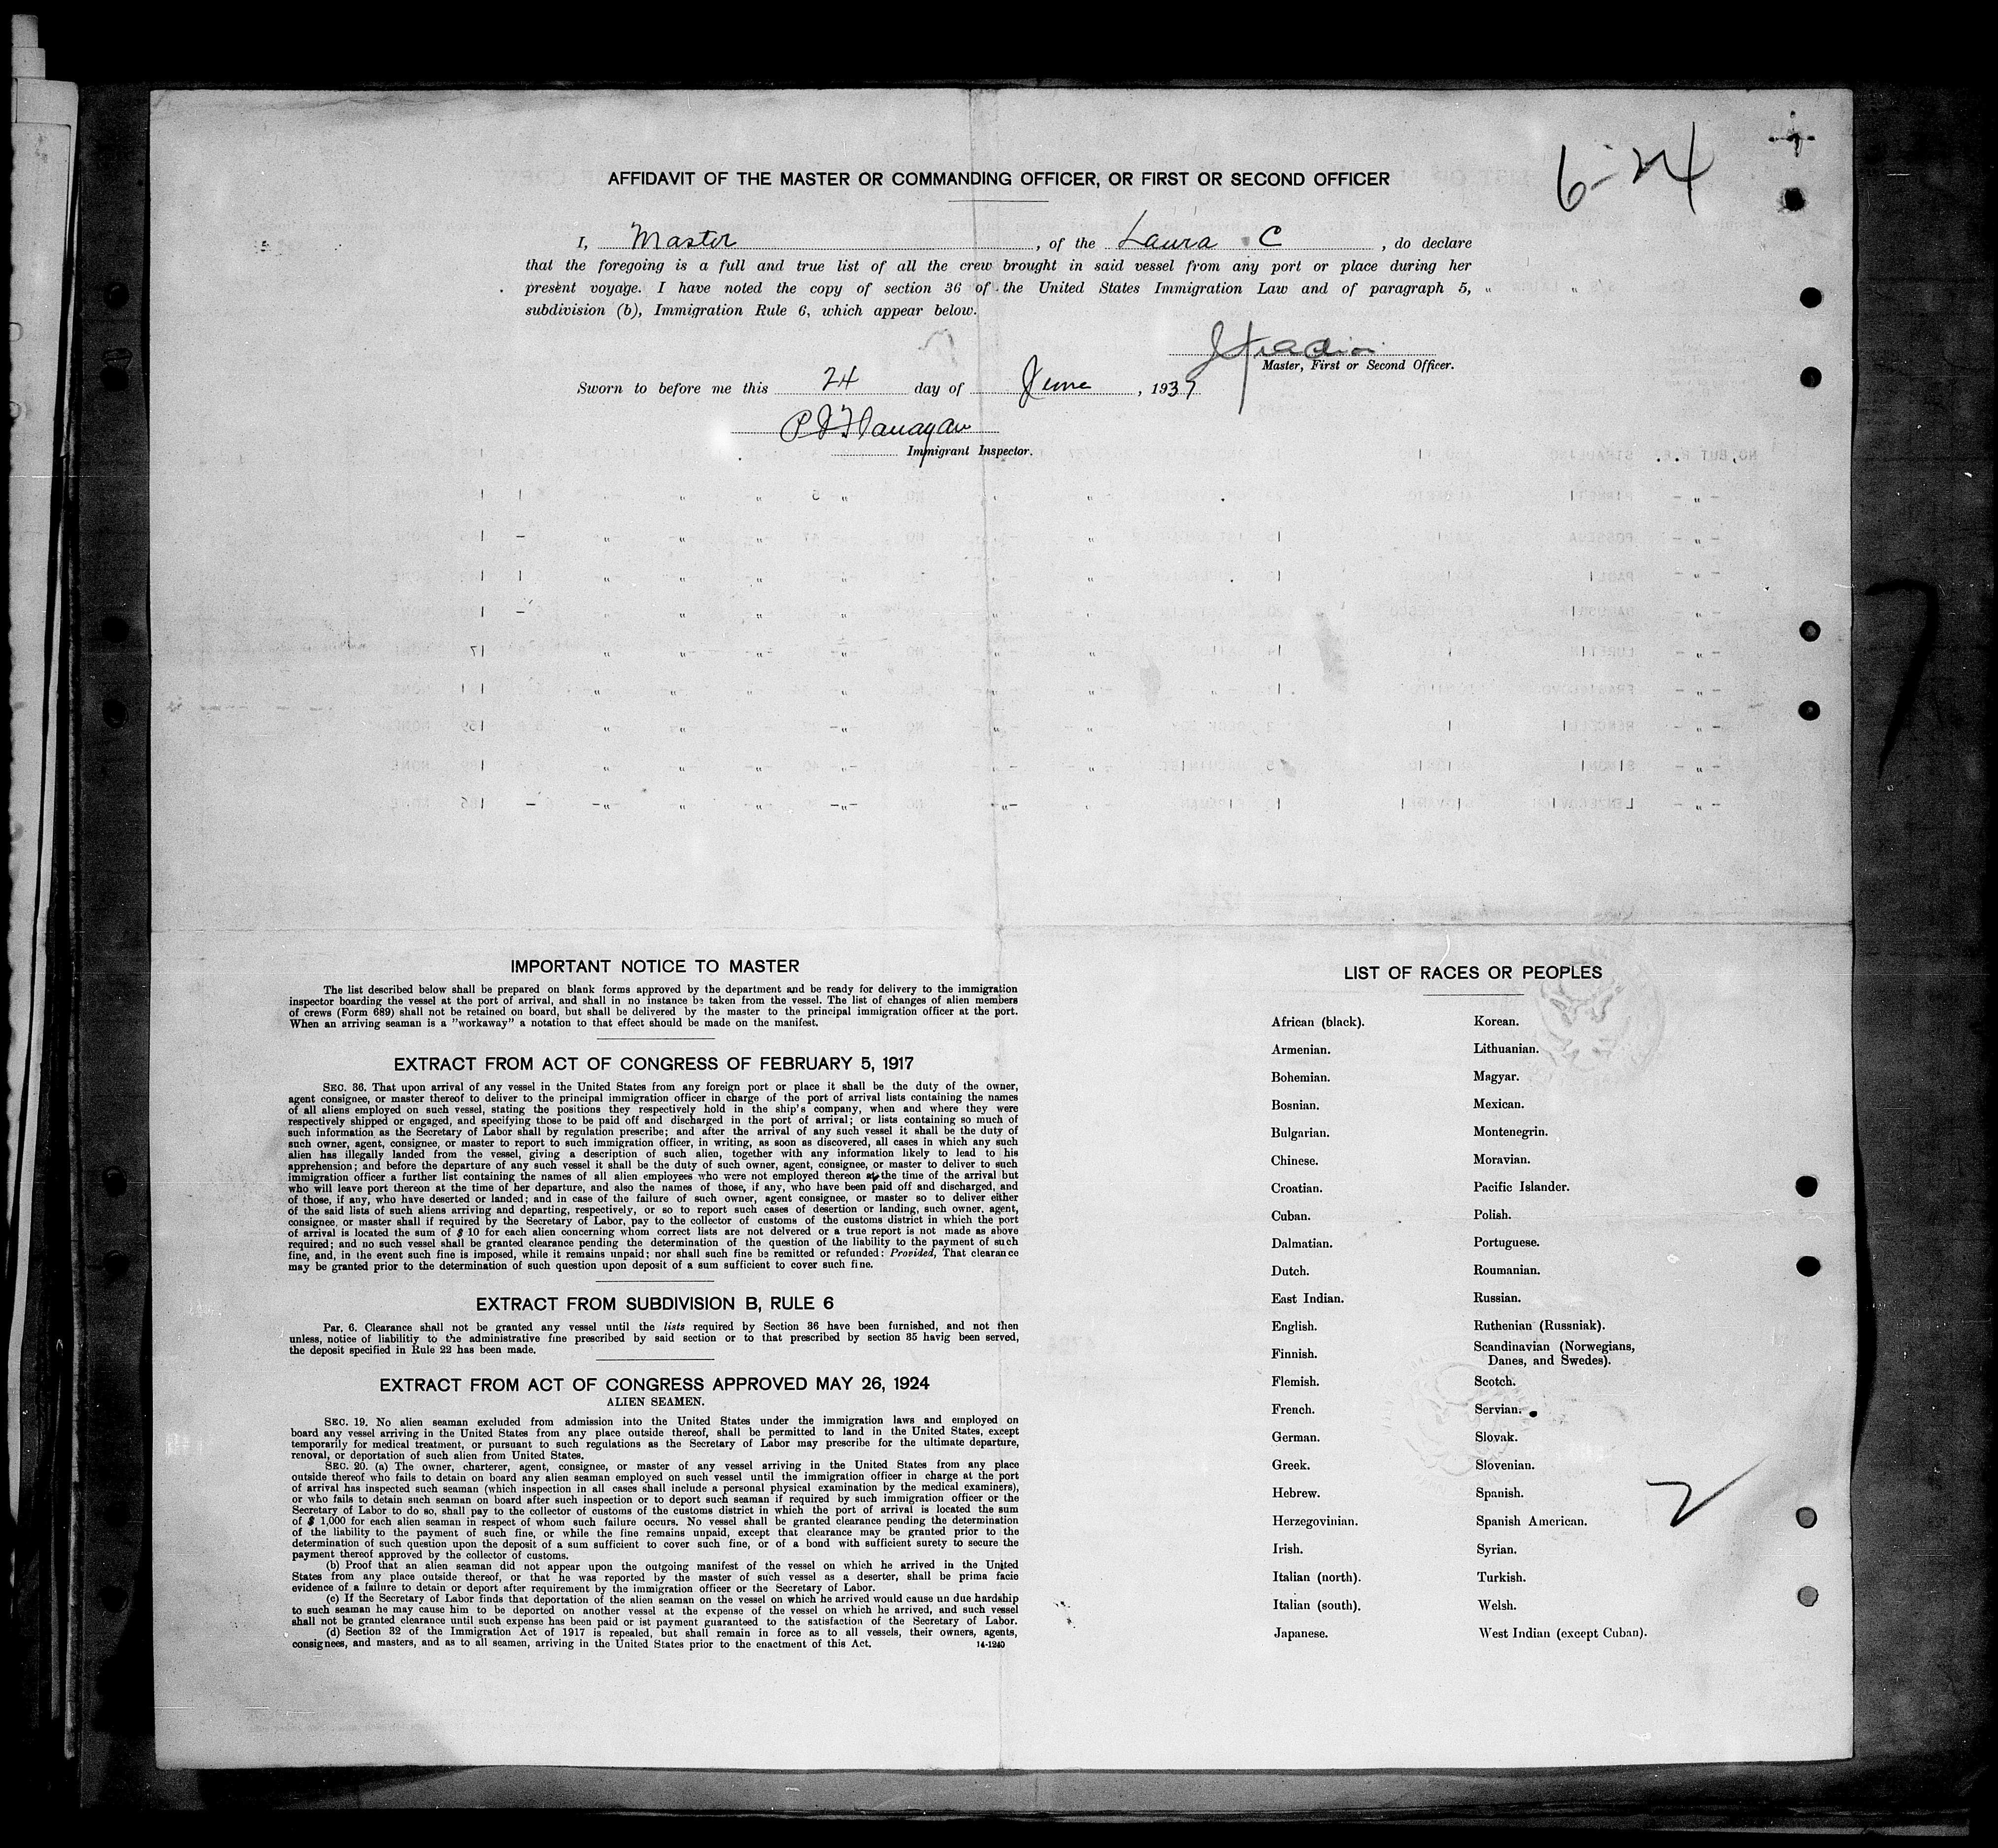 6-24
AFFIDAVIT OF THE MASTER OR COMMANDING OFFICER, OR FIRST OR SECOND OFFICER
I, Master, of the Laura C, do declare
that the foregoing is a full and true list of all the crew brought in said vessel from any port or place during her
present voyage. I have noted the copy of section 36 of the United States Immigration Law and of paragraph 5,
subdivision (b), Immigration Rule 6, which appear below.
Master, First or Second Officer.
Sworn to before me this 24 day of June, 1937
P J Flanagan
Immigrant Inspector.
7
IMPORTANT NOTICE TO MASTER
The list described below shall be prepared on blank forms approved by the department and be ready for delivery to the immigration
inspector boarding the vessel at the port of arrival, and shall in no instance be taken from the vessel. The list of changes of alien members
of crews (Form 689) shall not be retained on board, but shall be delivered by the master to the principal immigration officer at the port.
When an arriving seaman is a "workaway" a notation to that effect should be made on the manifest.
EXTRACT FROM ACT OF CONGRESS OF FEBRUARY 5, 1917
SEC. 36. That upon arrival of any vessel in the United States from any foreign port or place it shall be the duty of the owner,
agent consignee, or master thereof to deliver to the principal immigration officer in charge of the port of arrival lists containing the names
of all aliens employed on such vessel, stating the positions they respectively hold in the ship's company, when and where they were
respectively shipped or engaged, and specifying those to be paid off and discharged in the port of arrival; or lists containing so much of
such information as the Secretary of Labor shall by regulation prescribe; and after the arrival of any such vessel it shall be the duty of
such owner, agent, consignee, or master to report to such immigration officer, in writing, as soon as discovered, all cases in which any such
alien has illegally landed from the vessel, giving a description of such alien, together with any information likely to lead to his
apprehension; and before the departure of any such vessel it shall be the duty of such owner, agent, consignee, or master to deliver to such
immigration officer a further list containing the names of all alien employees who were not employed thereon at the time of the arrival but
who will leave port thereon at the time of her departure, and also the names of those, if any, who have been paid off and discharged, and
of those, if any, who have deserted or landed; and in case of the failure of such owner, agent consignee, or master so to deliver either
of the said lists of such aliens arriving and departing, respectively, or so to report such cases of desertion or landing, such owner, agent,
consignee, or master shall if required by the Secretary of Labor, pay to the collector of customs of the customs district in which the port
of arrival is located the sum of $ 10 for each alien concerning whom correct lists are not delivered or a true report is not made as above
required; and no such vessel shall be granted clearance pending the determination of the question of the liability to the payment of such
fine, and, in the event such fine is imposed, while it remains unpaid; nor shall such fine be remitted or refunded: Provided, That clearance
may be granted prior to the determination of such question upon deposit of a sum sufficient to cover such fine.
EXTRACT FROM SUBDIVISION B, RULE 6
Par. 6. Clearance shall not be granted any vessel until the lists required by Section 36 have been furnished, and not then
unless, notice of liabilitiy to the administrative fine prescribed by said section or to that prescribed by section 35 havig been served,
the deposit specified in Rule 22 has been made.
EXTRACT FROM ACT OF CONGRESS APPROVED MAY 26, 1924
ALIEN SEAMEN.
SEC. 19. No alien seaman excluded from admission into the United States under the immigration laws and employed on
board any vessel arriving in the United States from any place outside thereof, shall be permitted to land in the United States, except
temporarily for medical treatment, or pursuant to such regulations as the Secretary of Labor may prescribe for the ultimate departure,
renoval, or deportation of such alien from United States.
SEC. 20. (a) The owner, charterer, agent, consignee, or master of any vessel arriving in the United States from any place
outside thereof who fails to detain on board any alien seaman employed on such vessel until the immigration officer in charge at the port
of arrival has inspected such seaman (which inspection in all cases shall include a personal physical examination by the medical examiners),
or who fails to detain such seaman on board after such inspection or to deport such seaman if required by such immigration officer or the
Secretary of Labor to do so, shall pay to the collector of customs of the customs district in which the port of arrival is located the sum
of $ 1,000 for each alien seaman in respect of whom such failure occurs. No vessel shall be granted clearance pending the determination
of the liability to the payment of such fine, or while the fine remains unpaid, except that clearance may be granted prior to the
determination of such question upon the deposit of a sum sufficient to cover such fine, or of a bond with sufficient surety to secure the
payment thereof approved by the collector of customs.
(b) Proof that an alien seaman did not appear upon the outgoing manifest of the vessel on which he arrived in the United
States from any place outside thereof, or that he was reported by the master of such vessel as a deserter, shall be prima facie
evidence of a failure to detain or deport after requirement by the immigration officer or the Secretary of Labor.
(c) If the Secretary of Labor finds that deportation of the alien seaman on the vessel on which he arrived would cause un due hardship
to such seaman he may cause him to be deported on another vessel at the expense of the vessel on which he arrived, and such vessel
shall not be granted clearance until such expense has been paid or ist payment guaranteed to the satisfaction of the Secretary of Labor.
(d) Section 32 of the Immigration Act of 1917 is repealed, but shall remain in force as to all vessels, their owners, agents,
consignees, and masters, and as to all seamen, arriving in the United States prior to the enactment of this Act. 14-1240
LIST OF RACES OR PEOPLES
African (black). Korean.
Armenian. Lithuanian.
Bohemian. Magyar.
Bosnian. Mexican.
Bulgarian. Montenegrin.
Chinese. Moravian.
Croatian. Pacific Islander.
Cuban. Polish.
Dalmatian. Portuguese.
Dutch. Roumanian.
East Indian. Russian.
English. Ruthenian (Russniak).
Finnish. Scandinavian (Norwegians,
Danes, and Swedes).
Flemish. Scotch.
French. Servian.
German. Slovak.
Greek. Slovenian.
Hebrew. Spanish.
Herzegovinian. Spanish American.
Irish. Syrian.
Italian (north). Turkish.
Italian (south). Welsh.
Japanese. West Indian (except Cuban).
2